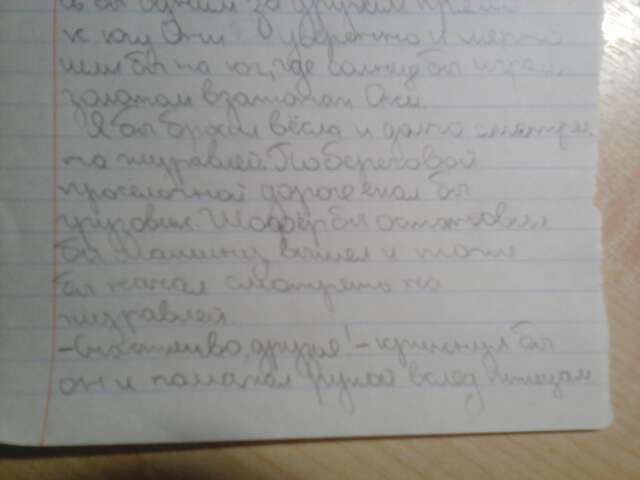 бы одним за другим
к югу Они уверенно и мерно
шли бы на юг, где солнце бы играло
золотом в затопан Оки
Я бы бросил вёсла и долго смотрел
на журавлей. По береговой
просёлочной дороге ехал бы
грузовик. Шофёр бы остановил
бы машину вышел и тоже
бы начал смотреть на
журавлей
-Счастливо, друзья! - крикнул бы
он и помахал рукой вслед птицам